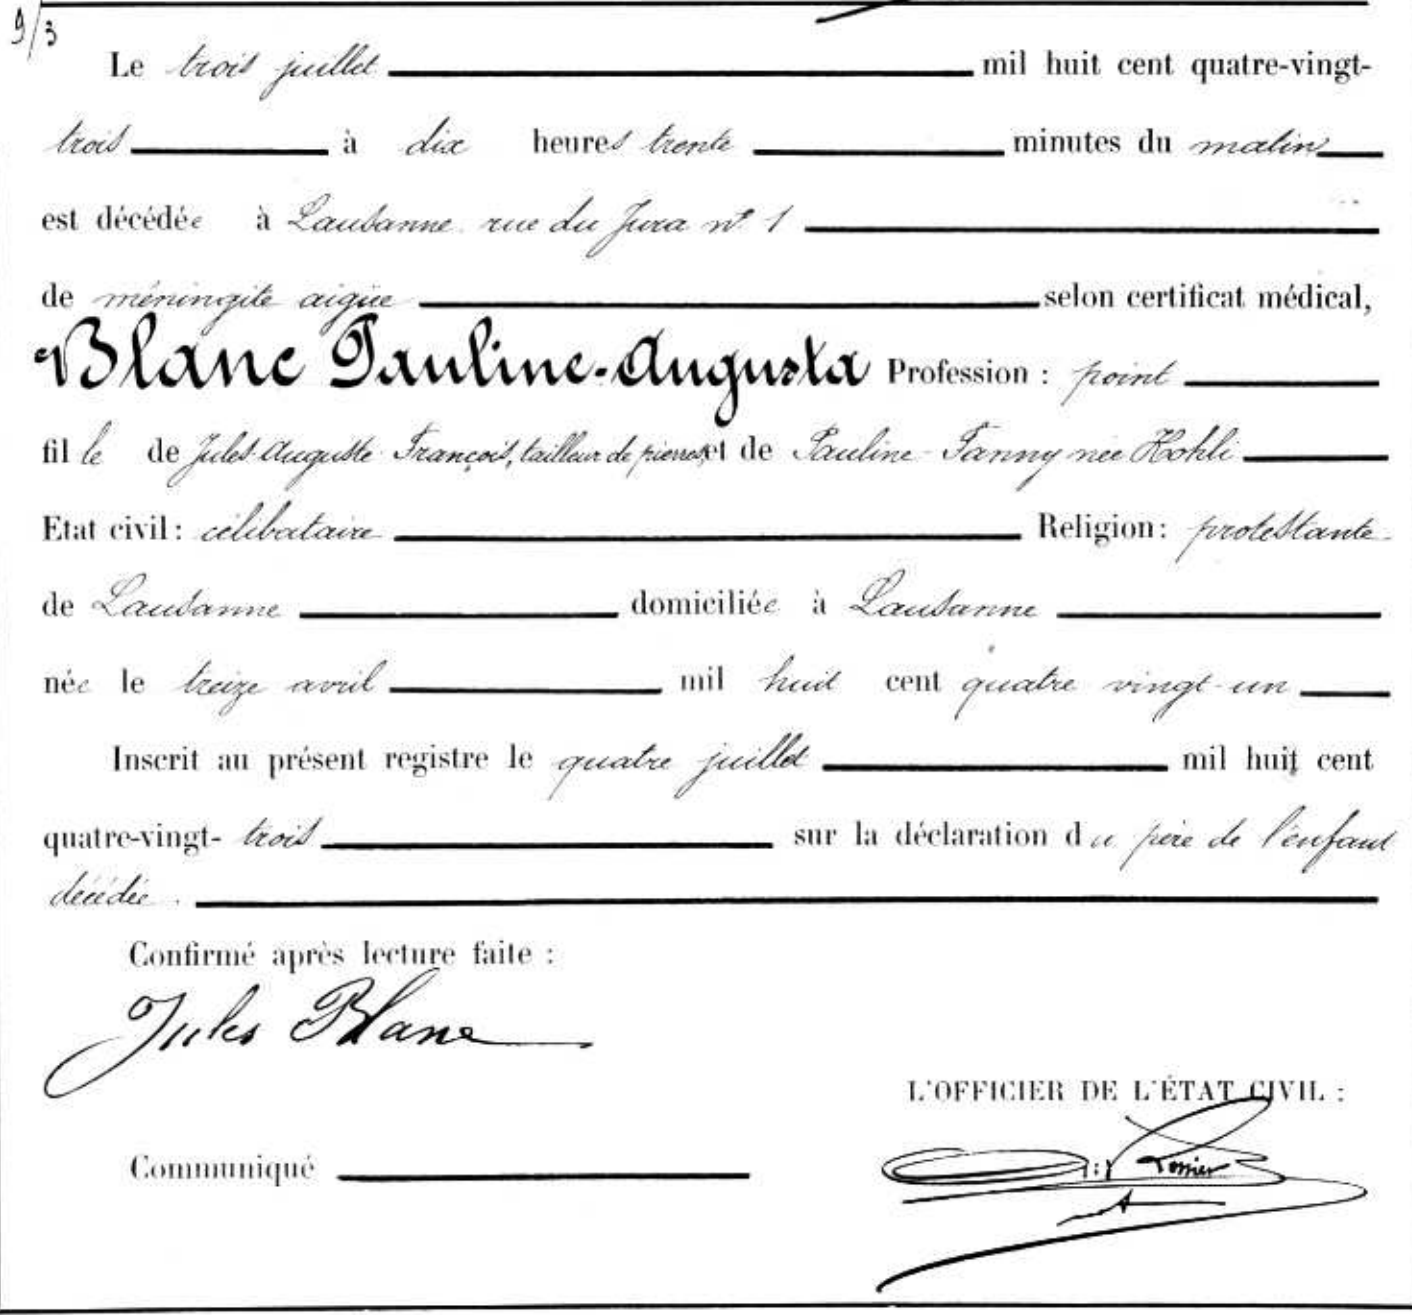 9/3
Le trois juillet mil huit cent quatre-vingt-
trois à dix heures trente minutes du matin
est décédée à Lausanne rue du Jura nº 1
de méningite aigüe selon certificat médical,
Blanc Pauline-Augusta Profession : point
fille de Jules-Auguste-François, tailleur de pierres, et de Pauline-Fanny née Hohli
Etat civil : célibataire Religion : protestante
de Lausanne domiciliée à Lausanne
née le treize avril mil huit cent quatre vingt-un
Inscrit au présent registre le quatre juillet mil huit cent
quatre-vingt-trois sur la déclaration du père de l'enfant
décédée.
Confirmé après lecture faite :
Jules Blanc
L'OFFICIER DE L'ÉTAT CIVIL :
Communiqué